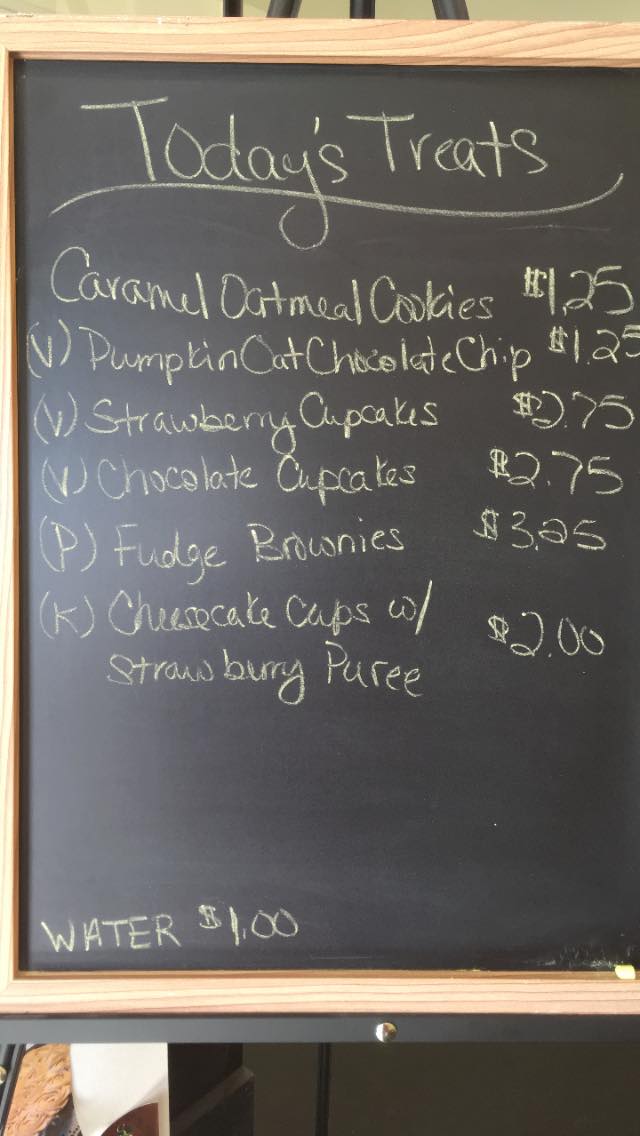 Today's Treats
Caramel Oatmeal Cookies $1.25
(V) Pumpkin Oat Chocolate Chip $1.25
(V) Strawberry Cupcakes $2.75
(V) Chocolate Cupcakes $2.75
(P) Fudge Brownies $3.25
(K) Cheesecake Cups w/ $2.00
Strawberry Puree
WATER $1.00